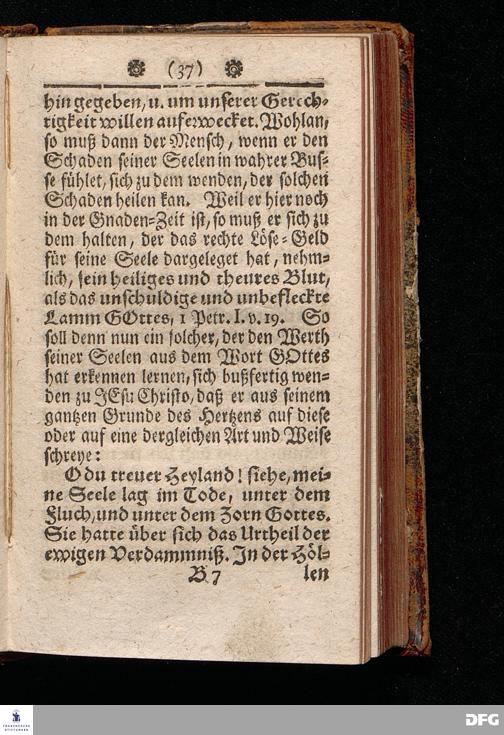 (37)
hin gegeben, u. um unserer Gerech-
tigkeit willen auferwecket. Wohlan,
so muß dann der Mensch, wenn er den
Schaden seiner Seelen in wahrer Bus-
se fühlet, sich zu dem wenden, der solchen
Schaden heilen kan. Weil er hier noch
in der Gnaden-Zeit ist, so muß er sich zu
dem halten, der das rechte Löse-Geld
für seine Seele dargeleget hat, nehm-
lich, sein heiliges und theures Blut,
als das unschuldige und unbefleckte
Lamm GOttes, 1 Petr. I. v. 19. So
soll denn nun ein solcher, der den Werth
seiner Seelen aus dem Wort GOttes
hat erkennen lernen, sich bußfertig wen-
den zu JEsu Christo, daß er aus seinem
gantzen Grunde des Hertzens auf diese
oder auf eine dergleichen Art und Weise
schreye:
O du treuer Heyland! siehe, mei-
ne Seele lag im Tode, unter dem
Fluch, und unter dem Zorn Gottes.
Sie hatte über sich das Urtheil der
ewigen Verdammniß. In der Höl-
B 7 len
FRANCKESCHE
STIFTUNGEN
DFG